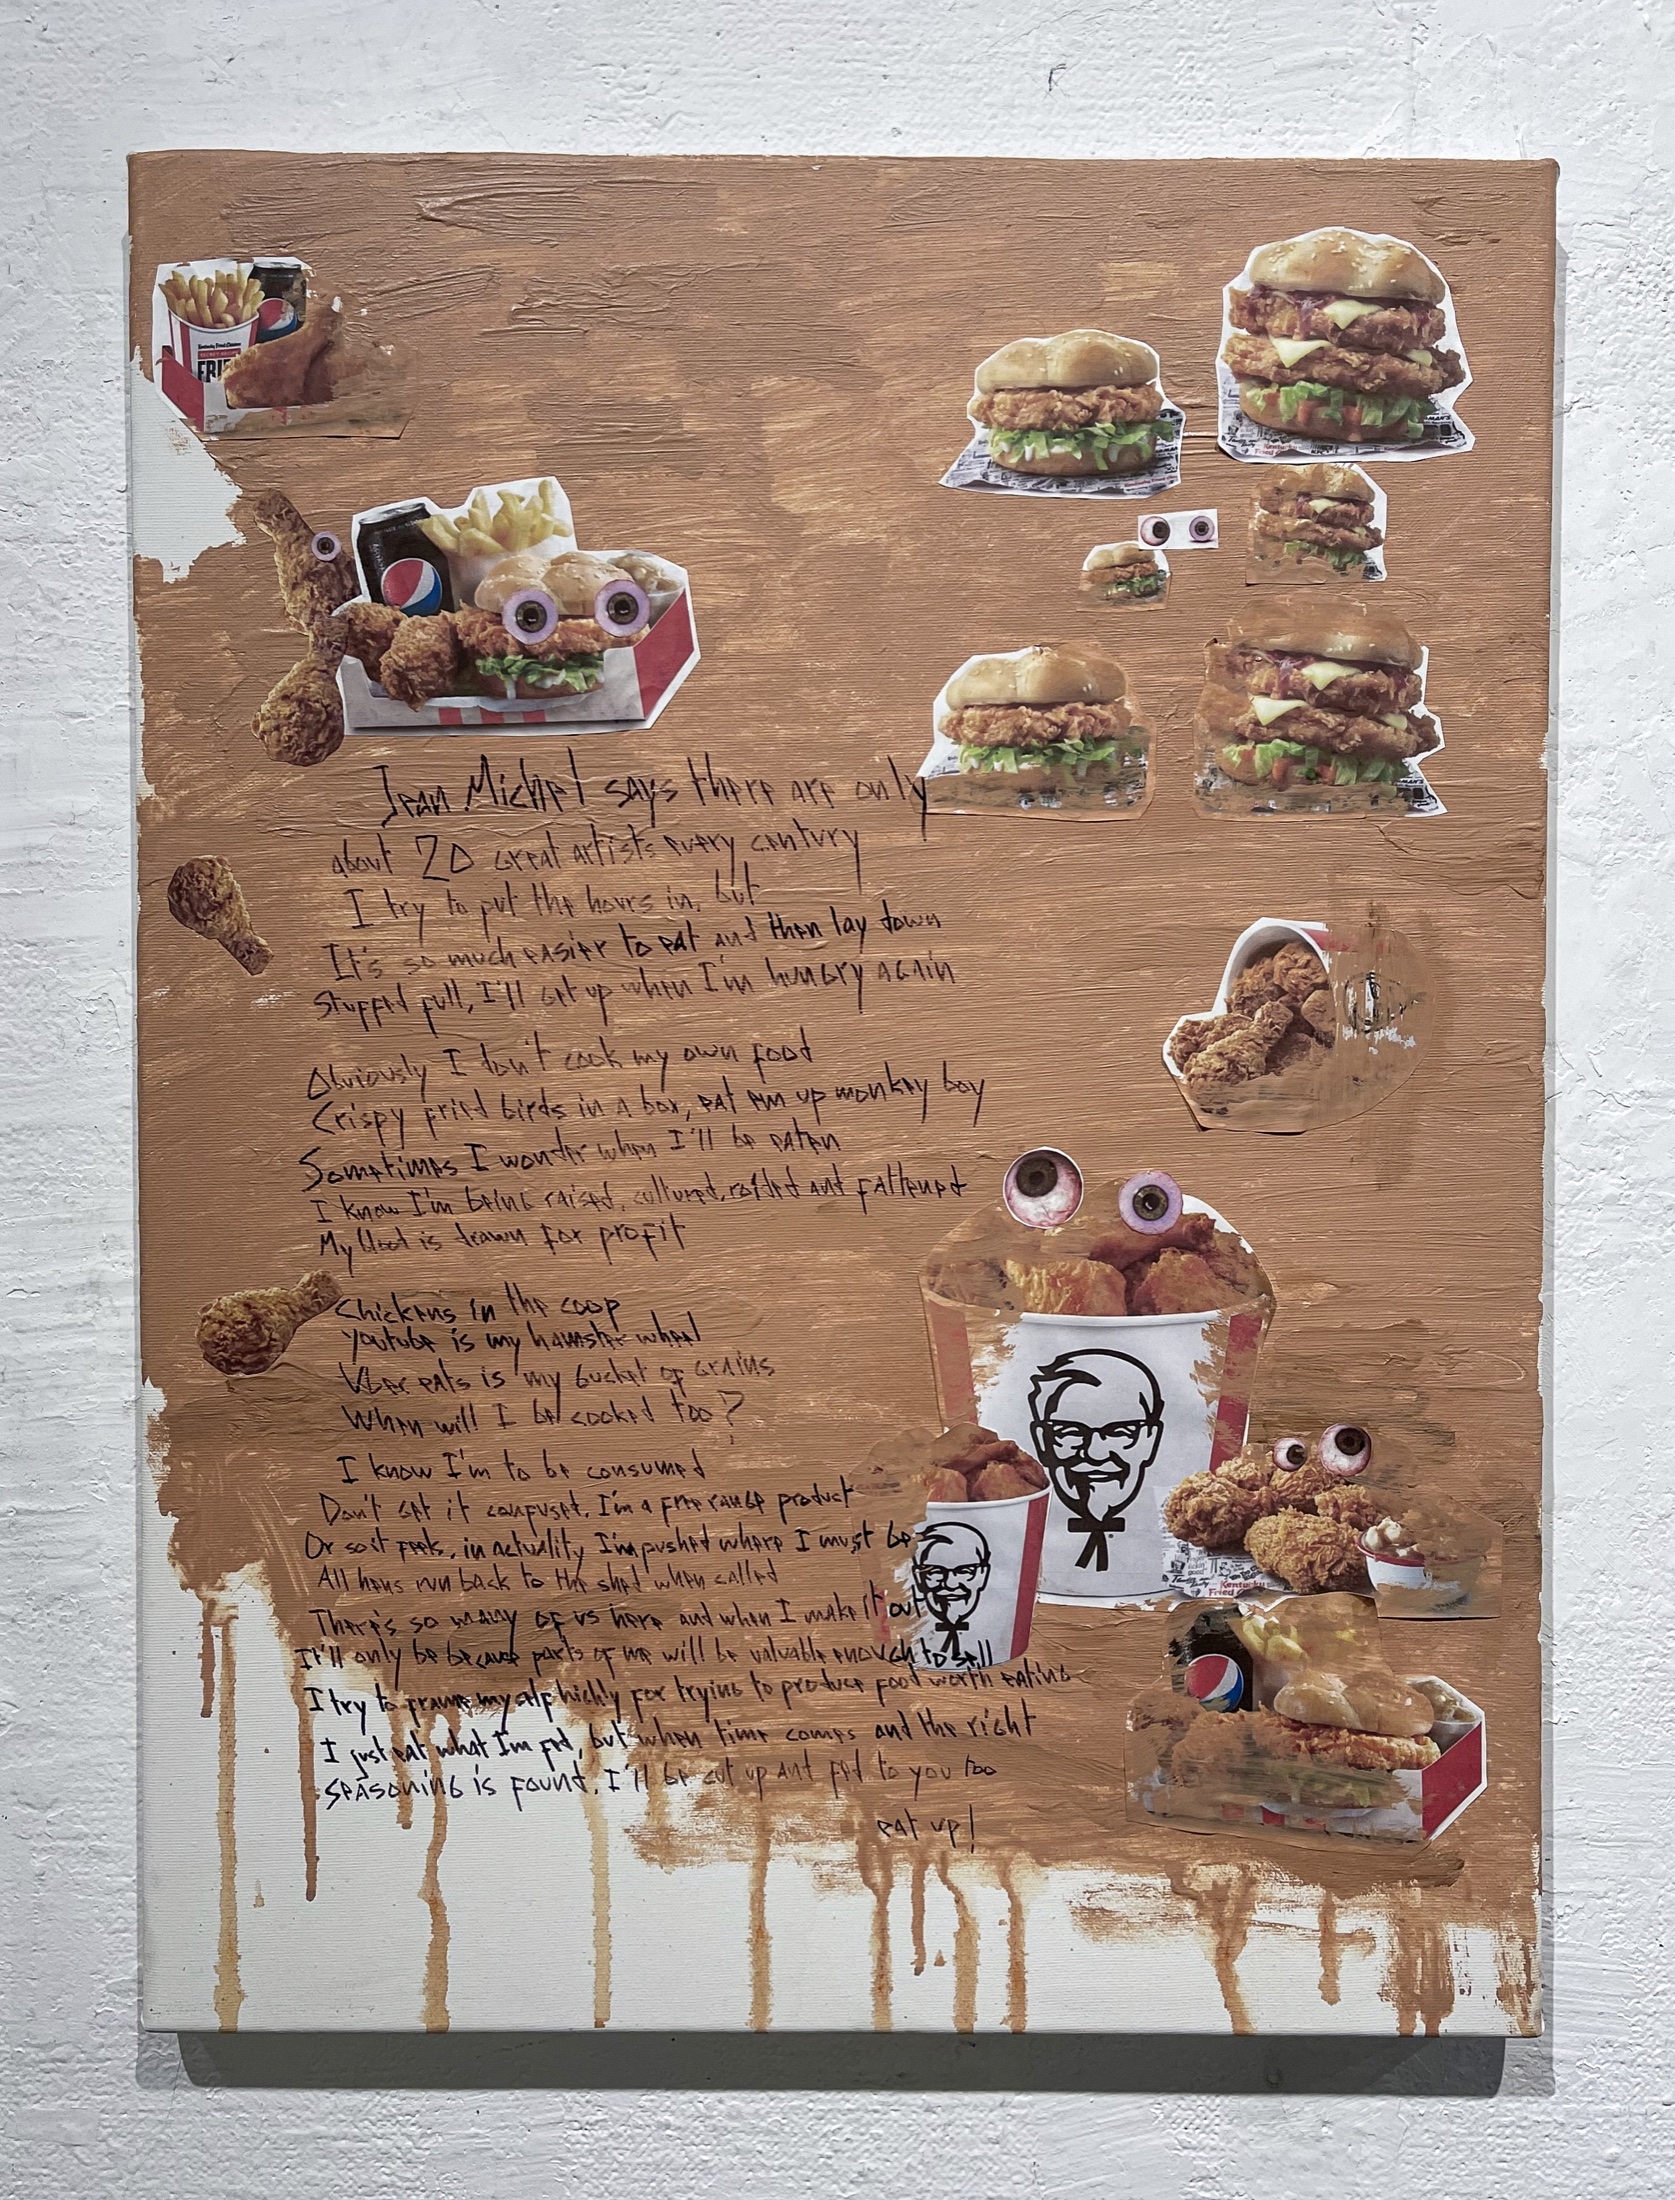 Kentucky Fried Chicken
SECRET RECIPE
FRI
Kentucky
Fried
Jean Michel says there are only
about 20 great artists every century
I try to put the hours in, but
It's so much easier to eat and then lay down
Stuffed full, I'll get up when I'm hungry again
Obviously I don't cook my own food
Crispy fried birds in a box, eat em up monkey boy
Sometimes I wonder when I'll be eaten
I know I'm being raised, cultured, and fattened
My blood is drawn for profit
Chickens in the coop
Youtube is my hamster wheel
Uber eats is my bucket of grains
When will I be cooked too?
I know I'm to be consumed
Don't get it confused, I'm a free range product
Or so it feels, in actuality I'm pushed where I must be
All hens run back to the shed when called
There's so many of us here and when I make it out
It'll only be because parts of me will be valuable enough to sell
I try to frame myself highly for trying to produce food worth eating
I just eat what I'm fed, but when time comes and the right
seasoning is found, I'll be cut up and fed to you too
eat up!
Kentucky
Fried C